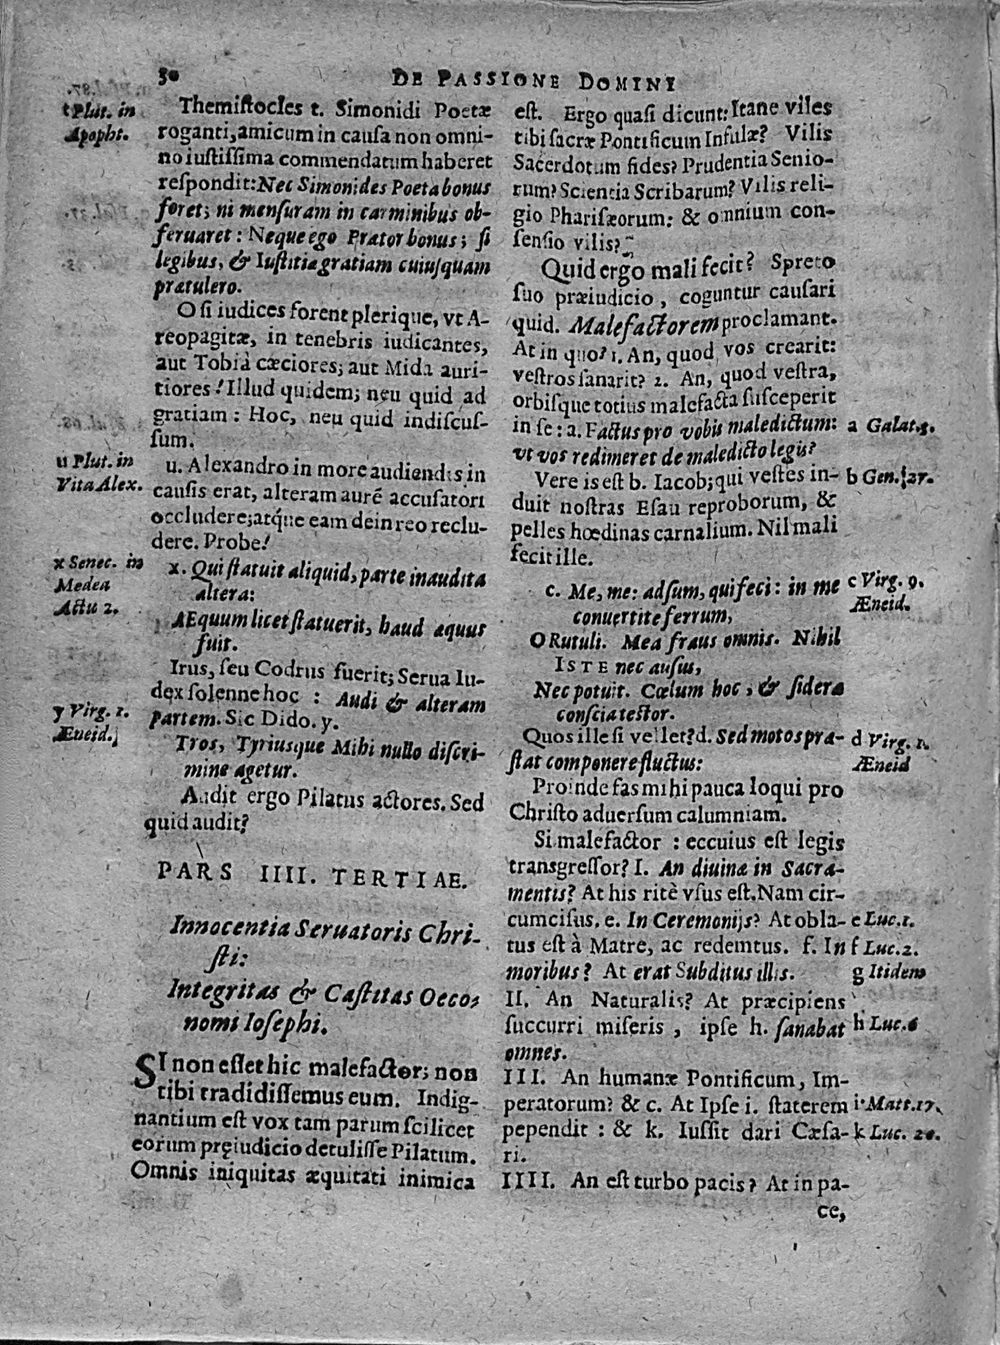 50
DE PASSIONE DOMINI
t Plut. in
Apopht.
Themiſtocles t. Simonidi Poetæ
roganti, amicum in cauſa non omni-
no iuſtiſſima commendatum haberet
reſpondit: Nec Simonides Poeta bonus
foret; ni menſuram in carminibus ob-
ſeruaret: Neque ego Prætor bonus; ſi
legibus, & Iuſtitia gratiam cuiuſquam
prætulero.
O ſi iudices forent plerique, vt A-
reopagitæ, in tenebris iudicantes,
aut Tobià cæciores; aut Mida auri-
tiores! Illud quidem; neu quid ad
gratiam: Hoc, neu quid indiſcuſ-
ſum.
u Plut. in
Vita Alex.
u. Alexandro in more audiendis in
cauſis erat, alteram aurē accuſatori
occludere; atq́ue eam dein reo reclu-
dere. Probe!
x Senec. in
Medea
Actu 2.
x. Qui ſtatuit aliquid, parte inaudita
altera:
AEquum licet ſtatuerit, haud æquus
fuit.
Irus, ſeu Codrus fuerit; Serua Iu-
dex ſolenne hoc : Audi & alteram
partem. Sic Dido. y.
y Virg. 1.
Æneid.
Tros, Tyriusque Mihi nullo diſcri-
mine agetur.
Audit ergo Pilatus actores. Sed
quid audit?
PARS IIII. TERTIAE.
Innocentia Seruatoris Chri-
ſti:
Integritas & Caſtitas Oeco-
nomi Ioſephi.
SI non eſſet hic malefactor; non
tibi tradidiſſemus eum. Indig-
nantium eſt vox tam parum ſcilicet
eorum pręiudicio detuliſſe Pilatum.
Omnis iniquitas æquitati inimica
eſt. Ergo quaſi dicunt: Itane viles
tibi ſacræ Pontificum Inſulæ? Vilis
Sacerdotum fides? Prudentia Senio-
rum? Scientia Scribarum? Vilis reli-
gio Phariſæorum: & omnium con-
ſenſio vilis?
Quid ergo mali fecit? Spreto
ſuo præiudicio, coguntur cauſari
quid. Malefactorem proclamant.
At in quo? 1. An, quod vos crearit:
veſtros ſanarit? 2. An, quod veſtra,
orbiſque totius malefacta ſuſceperit
in ſe: a. Factus pro vobis maledictum:
vt vos redimeret de maledicto legis?
a Galat. 3.
Vere is eſt b. Iacob; qui veſtes in-
duit noſtras Eſau reproborum, &
pelles hœdinas carnalium. Nil mali
fecit ille.
b Gen. 27.
c. Me, me: adſum, qui feci: in me
conuertite ferrum,
O Rutuli. Mea fraus omnis. Nihil
ISTE nec auſus,
Nec potuit. Cœlum hoc, & ſidera
conſcia teſtor.
c Virg. 9.
Æneid.
Quos ille ſi vellet? d. Sed motos præ-
ſtat componere fluctus:
d Virg. 1.
Æneid
Proinde fas mihi pauca loqui pro
Chriſto aduerſum calumniam.
Si malefactor : eccuius eſt legis
transgreſſor? I. An diuinæ in Sacra-
mentis? At his ritè vſus eſt. Nam cir-
cumciſus. e. In Ceremonijs? At obla-
tus eſt à Matre, ac redemtus. f. In
moribus? At erat Subditus illis.
e Luc. 1.
f Luc. 2.
g Itidem
II. An Naturalis? At præcipiens
ſuccurri miſeris, ipſe h. ſanabat
omnes.
h Luc. 6
III. An humanæ Pontificum, Im-
peratorum? & c. At Ipſe i. ſtaterem
pependit : & k. Iuſſit dari Cæſa-
ri.
i Matt. 17.
k Luc. 20.
IIII. An eſt turbo pacis? At in pa-
ce,